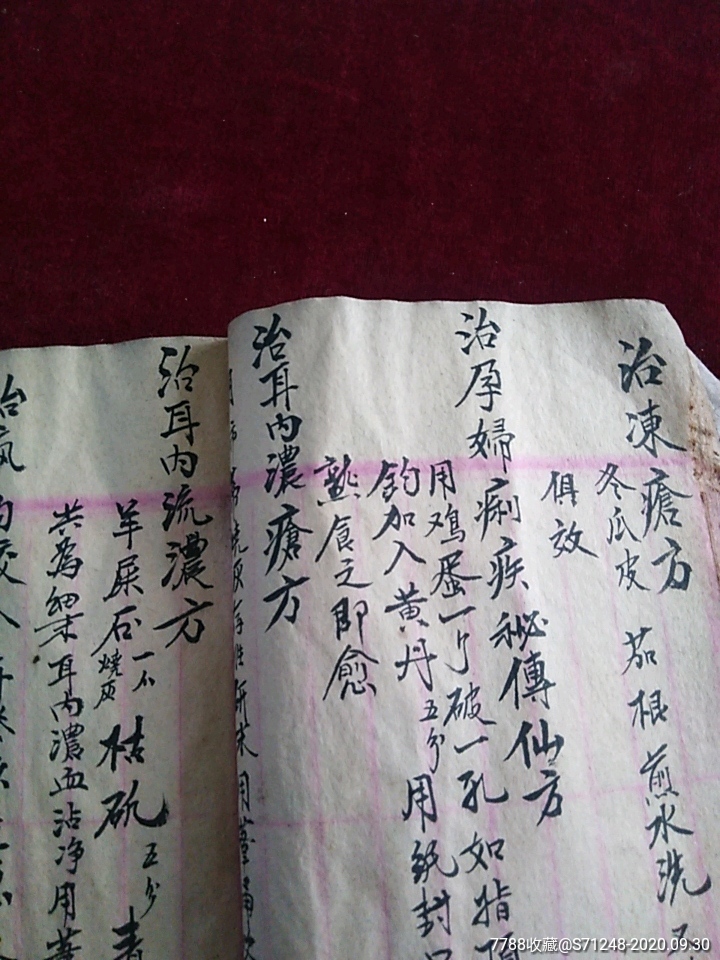 治凍瘡方
冬瓜皮 茄根 煎水洗
俱效
治孕婦痢疾秘傳仙方
用鸡蛋一个破一孔如指頂
鈞加入黄丹五分用紙封口
熟食之即愈
治耳内濃瘡方
燒灰存性研末用
治耳内流濃方
羊屎石一个燒灰 枯矾五分
共為細末耳内濃血沾净用
治疯
7788收藏@S71248-2020.09.30